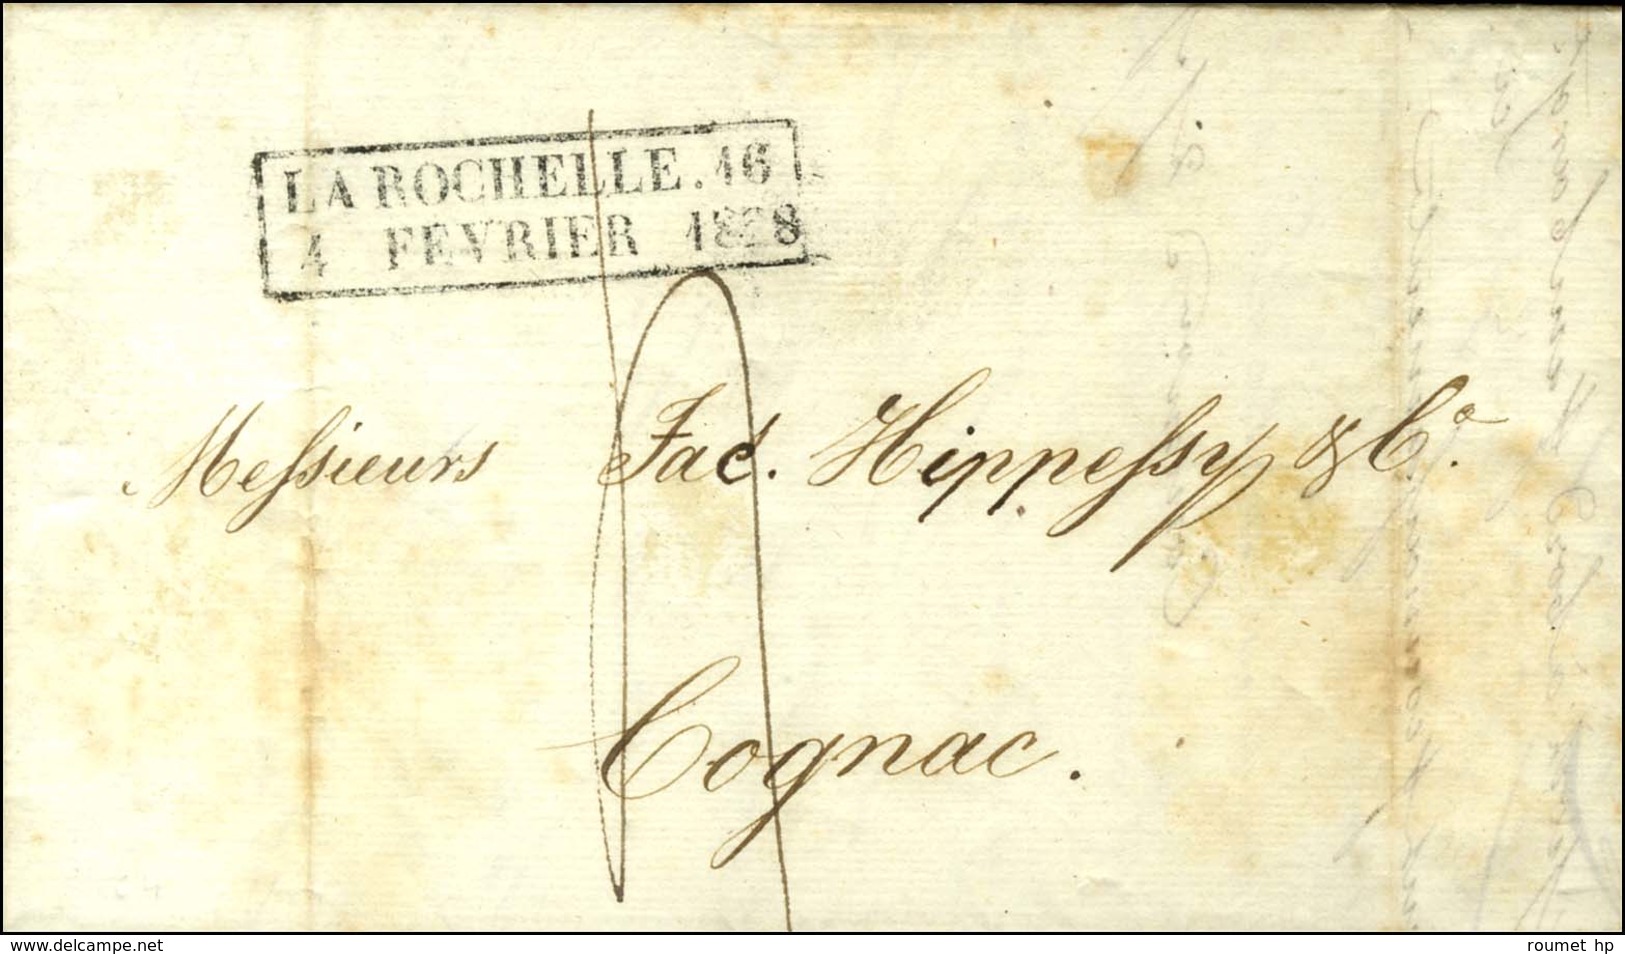 LA ROCHELLE. 16
4 FEVRIER 1828
Messieurs Jac. Hippessy & Co.
Cognac.
www.delcampe.net
roumet hp